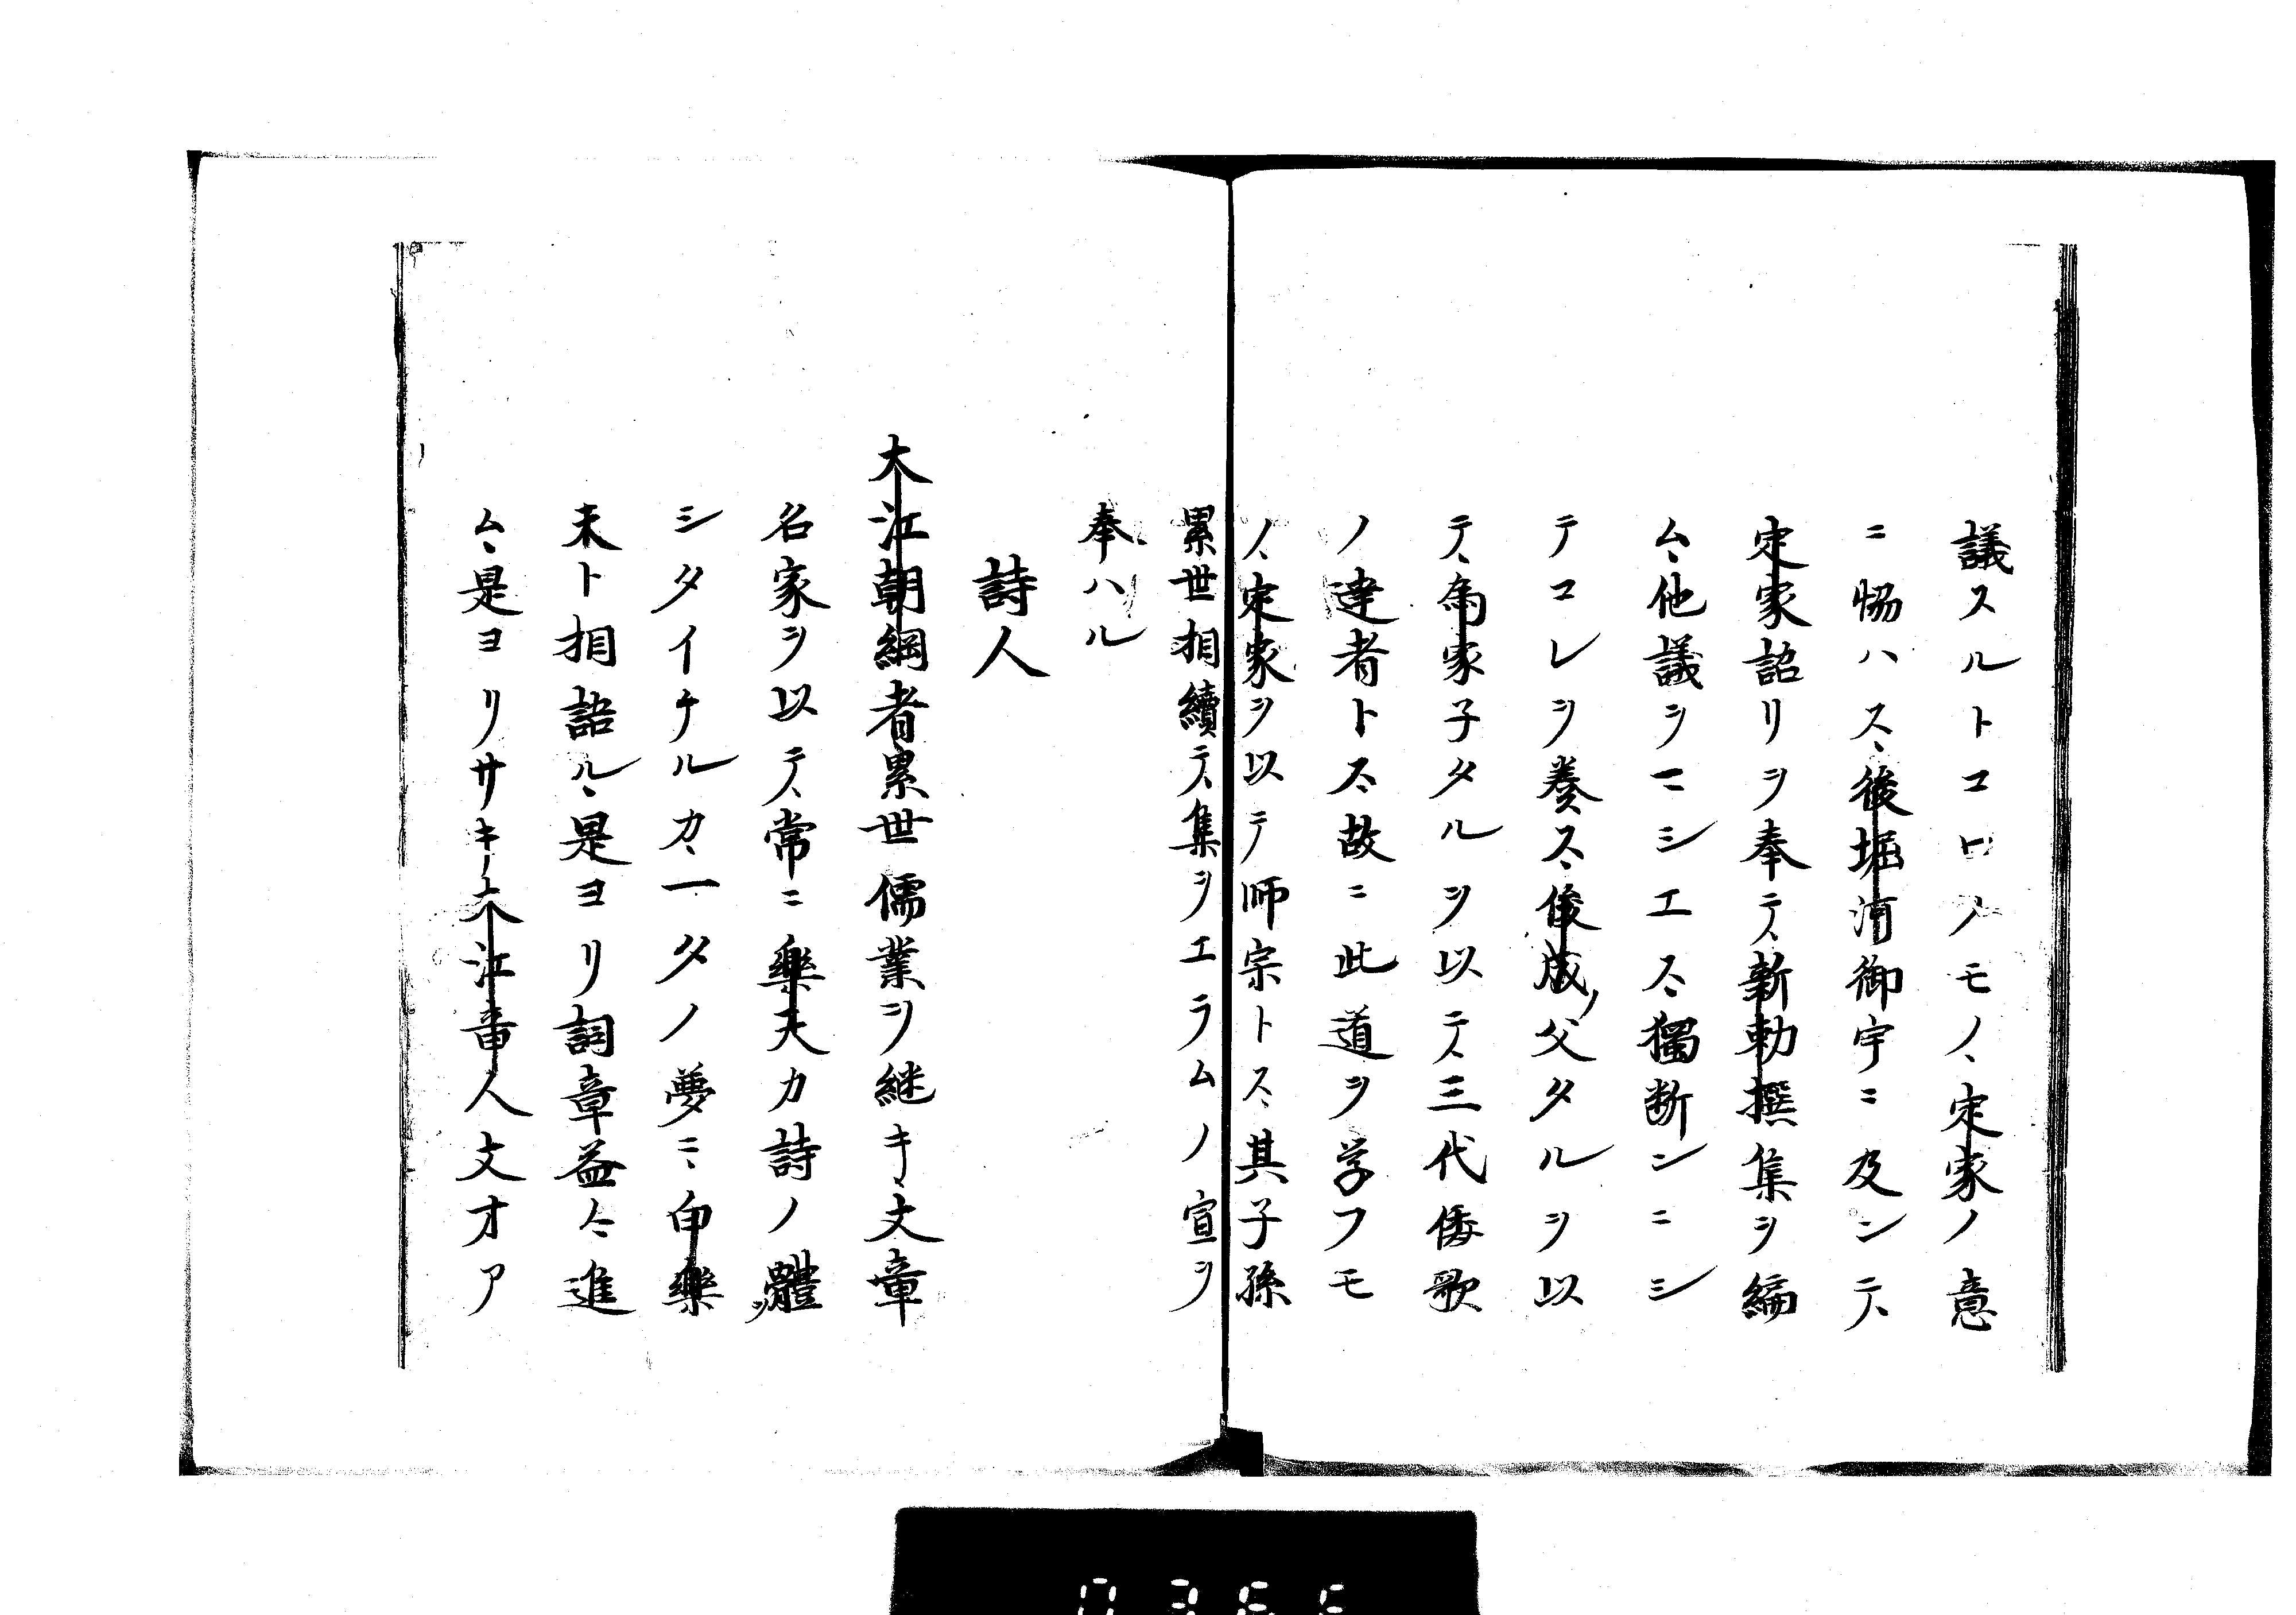 議スルトコロノモノ、定家ノ意
ニ恊ハス、後堀河御宇ニ及ンテ、
定家詔リヲ奉テ、新勅撰集ヲ編
ム、他議ヲマシエス、獨断ンニシ
テコレヲ奏ス、俊成ノ父タルヲ以
テ、為家子タルヲ以テ、三代倭歌
ノ達者トス、故ニ此道ヲ学フモ
ノ、定家ヲ以テ師宗トス、其子孫
累世相續テ、集ヲエラムノ宣ヲ
奉ハル
詩人
大江朝綱者累世儒業ヲ継キ、文章
名家ヲ以テ、常ニ樂天カ詩ノ體ヲ
シタイケルカ、一夕ノ夢ニ、白樂
天ト相語ル、是ヨリ詞章益々進
ム、是ヨリサキノ大江音人文才ア